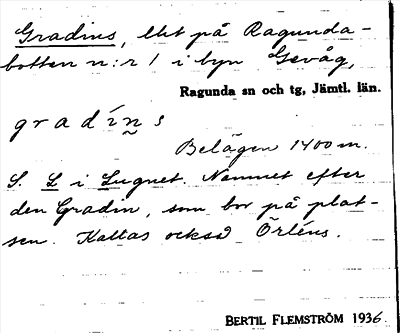 Gradins, lht på Ragunda-
botten n:r 1 i byn Gevåg,
Ragunda sn och tg, Jämtl. län.
gradíns
Belägen 1400 m.
S. L i Lugnet. Namnet efter
den Gradin, som bor på plat-
sen. Kallas också Örléns.
BERTIL FLEMSTRÖM 1936.